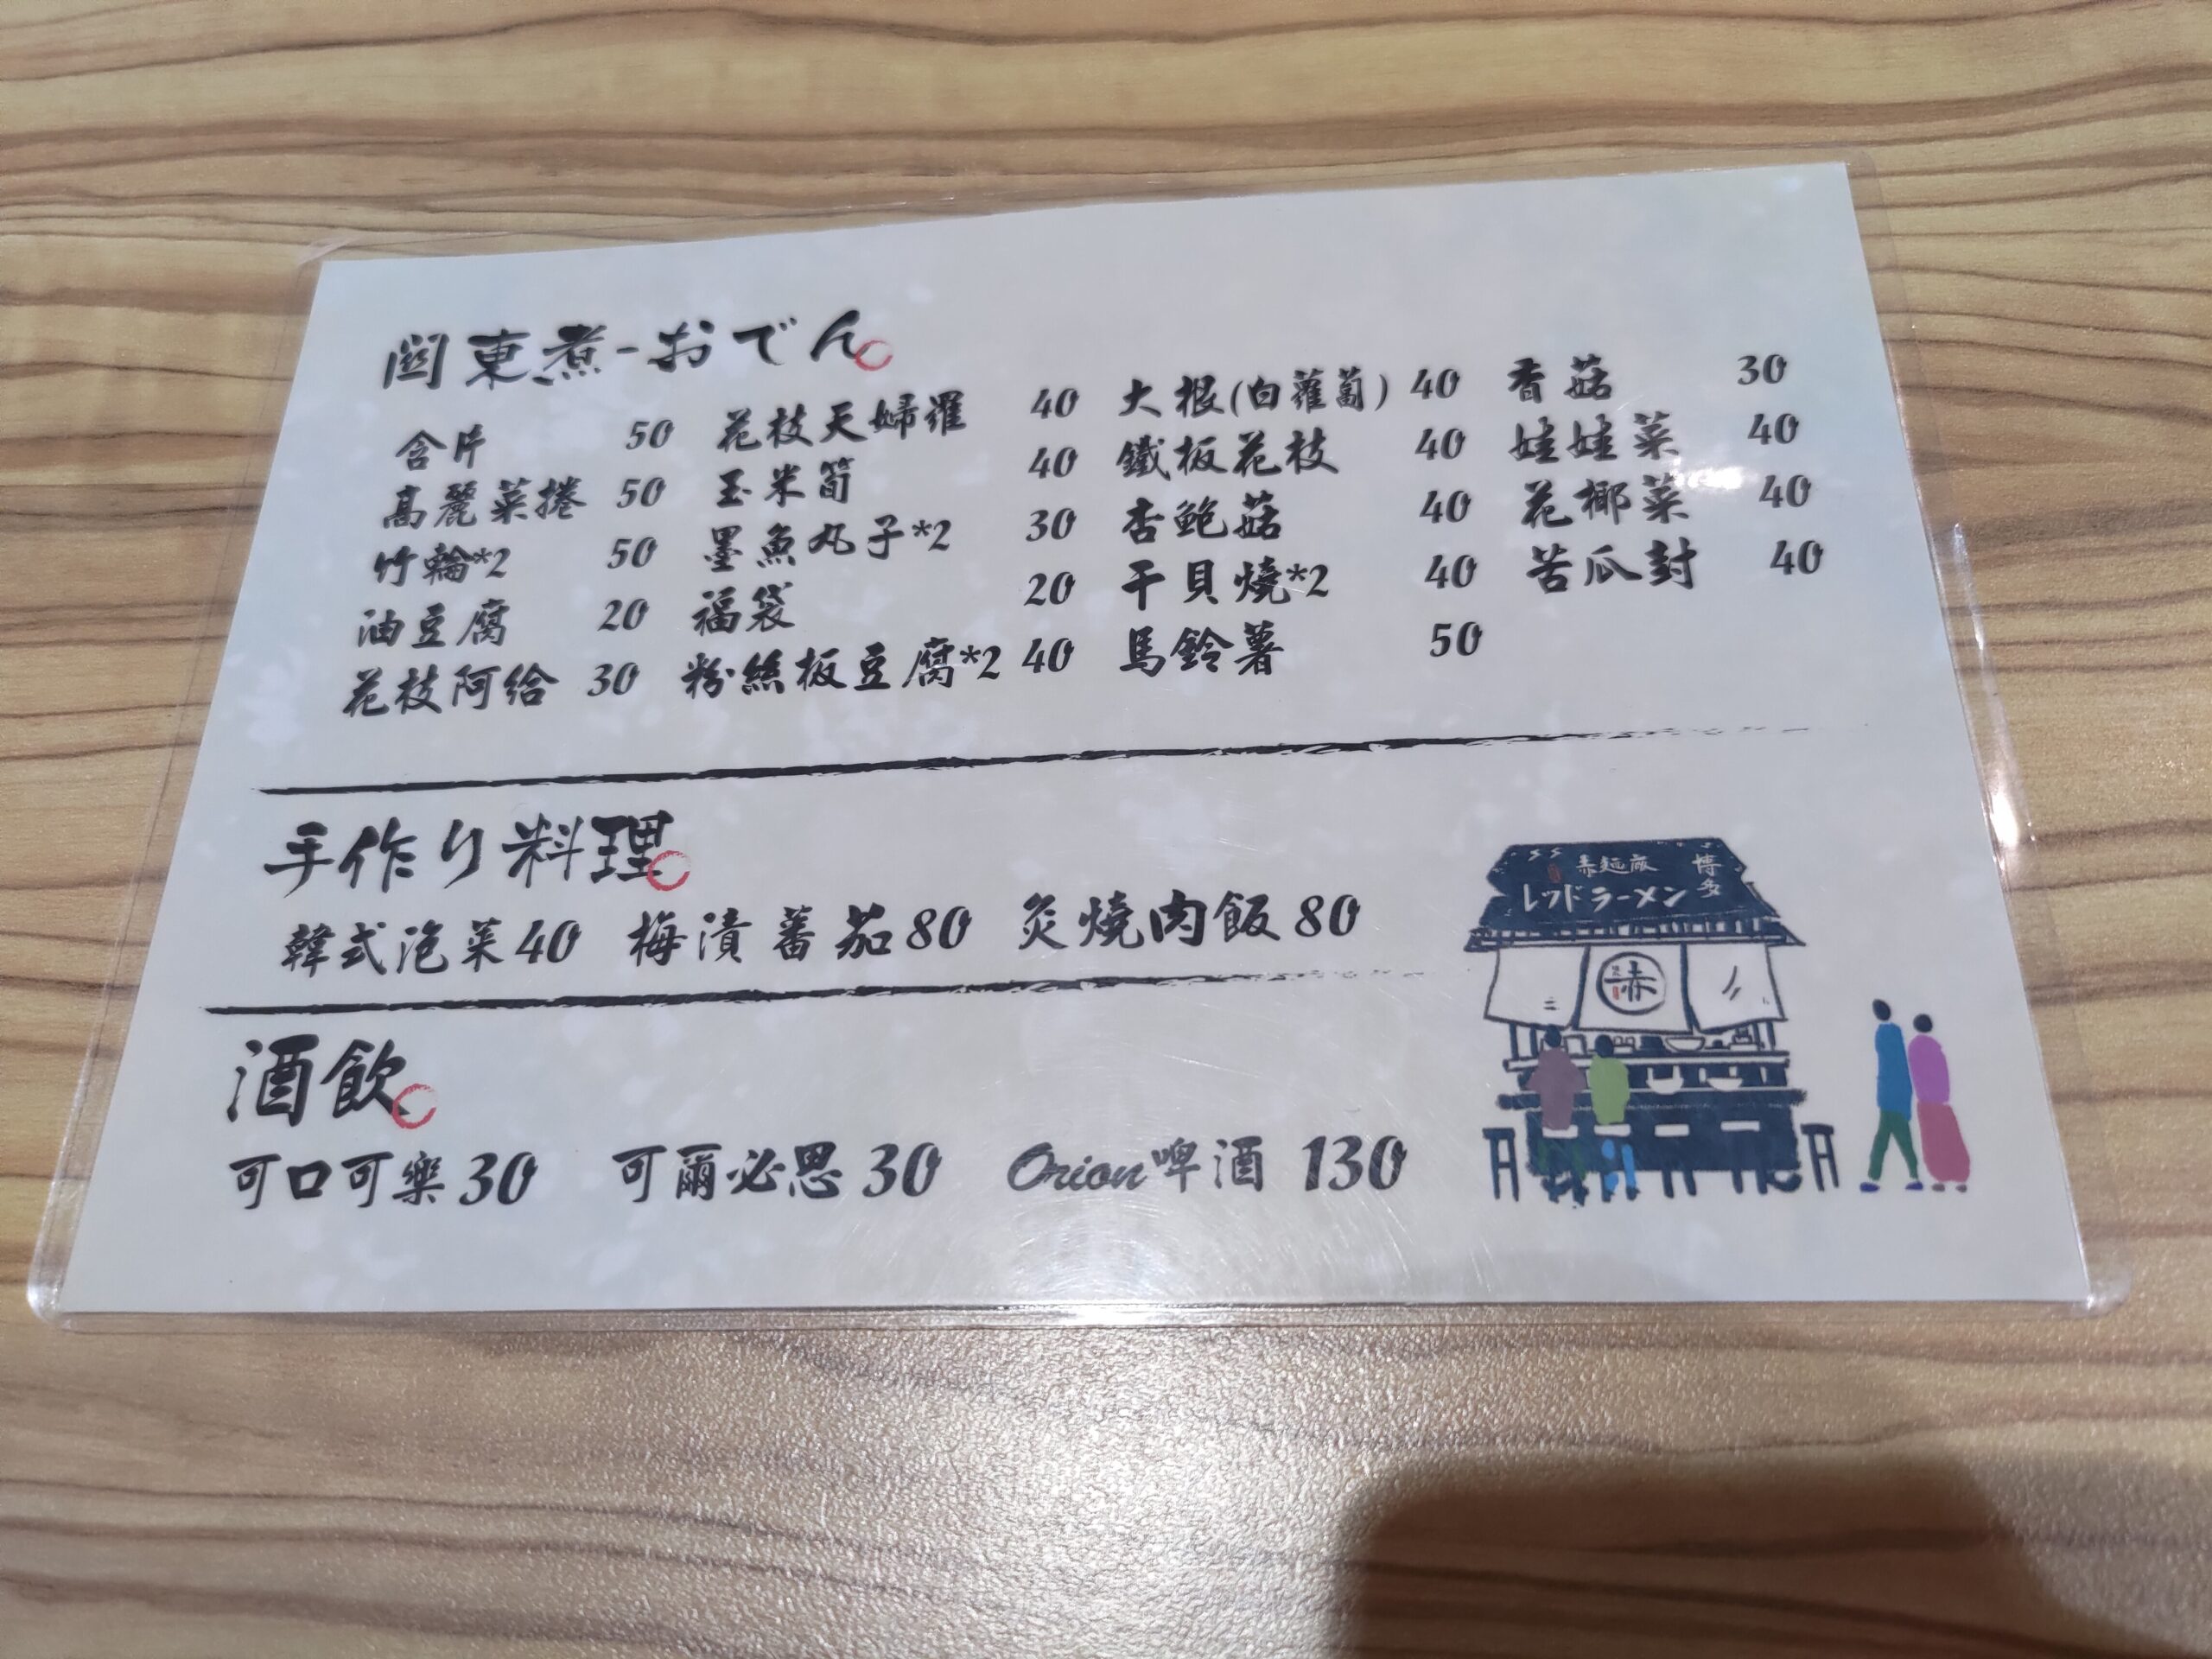 関東煮-おでん
含片 50 花枝天婦羅 40 大根(白蘿蔔) 40 香菇 30
高麗菜捲 50 玉米筍 40 鐵板花枝 40 娃娃菜 40
竹輪*2 50 墨魚丸子*2 30 杏鮑菇 40 花椰菜 40
油豆腐 20 福袋 20 干貝燒*2 40 苦瓜封 40
花枝阿給 30 粉絲板豆腐*2 40 馬鈴薯 50
手作り料理
韓式泡菜 40 梅漬蕃茄 80 炙燒肉飯 80
赤麺廠 博多
レッドラーメン
赤
酒飲
可口可樂 30 可爾必思 30 Orion啤酒 130